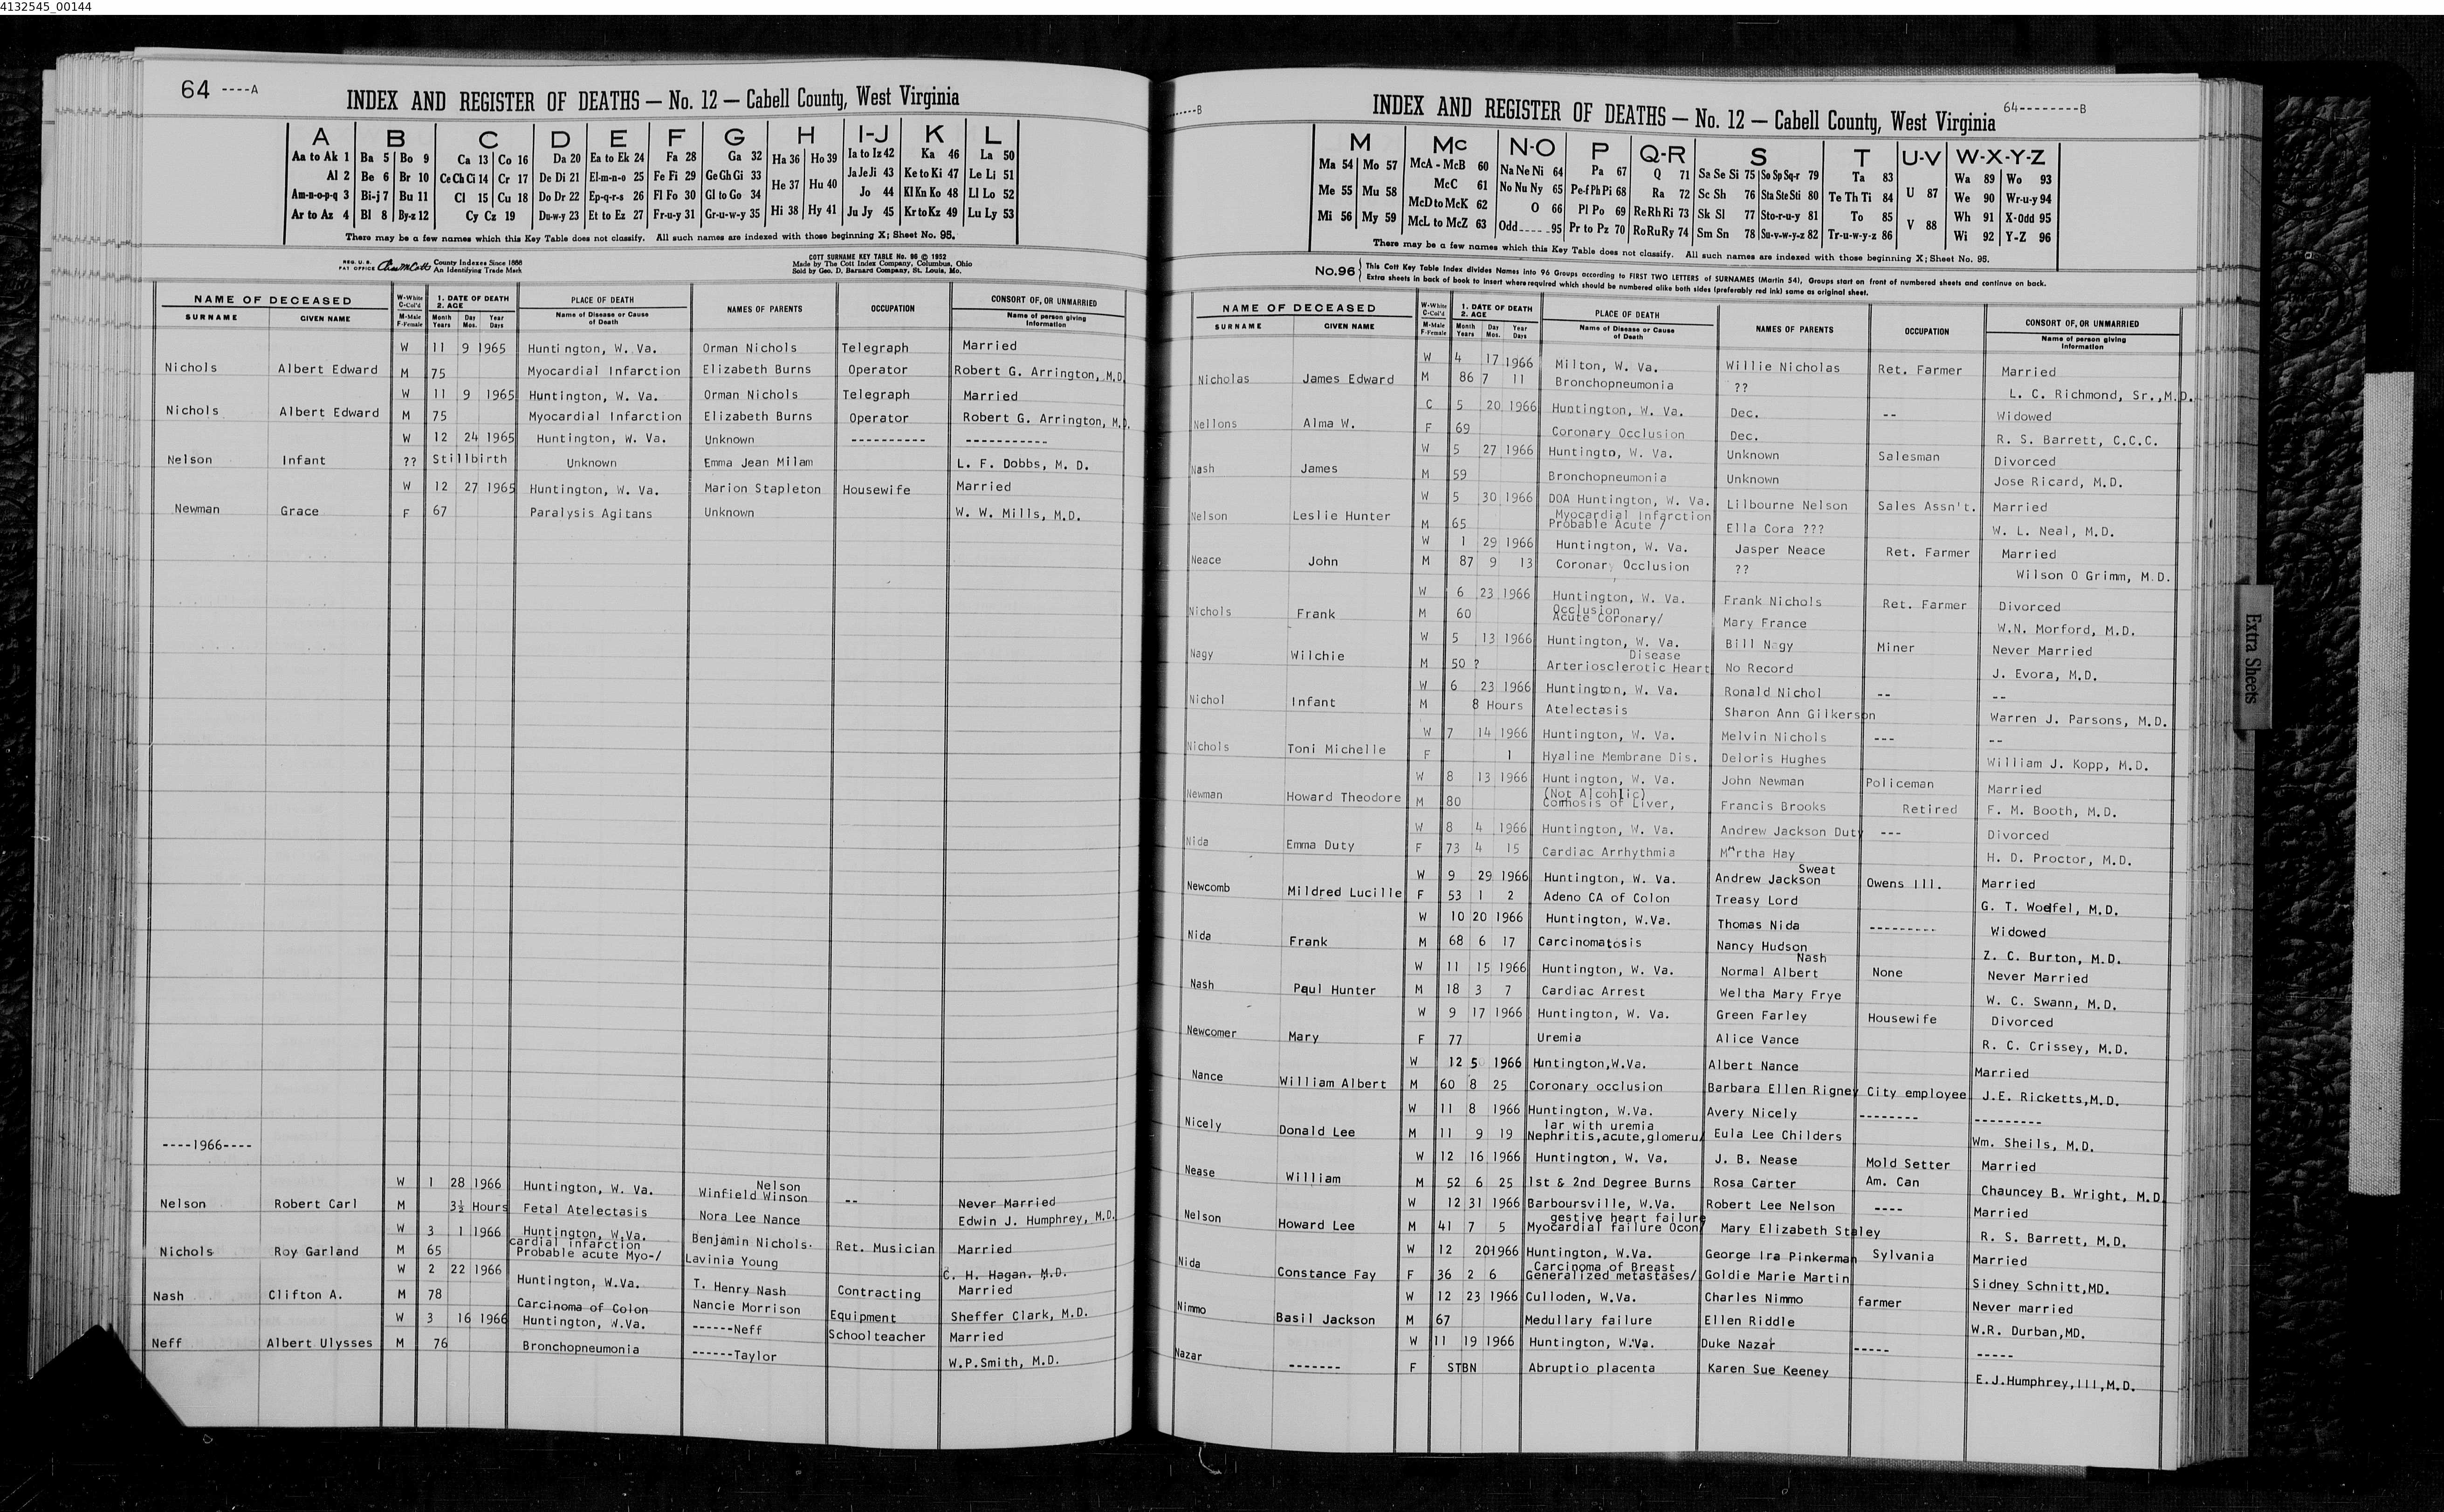 4132545_00144
64 ----A
INDEX AND REGISTER OF DEATHS — No. 12 — Cabell County, West Virginia
A B C D E F G H I-J K L
Aa to Ak 1 Ba 5 Bo 9 Ca 13 Co 16 Da 20 Ea to Ek 24 Fa 28 Ga 32 Ha 36 Ho 39 Ia to Iz 42 Ka 46 La 50
Al 2 Be 6 Br 10 Ce Ch Ci 14 Cr 17 De Di 21 El-m-n-o 25 Fe Fi 29 Ge Gh Gi 33 He 37 Hu 40 Ja Je Ji 43 Ke to Ki 47 Le Li 51
Am-n-o-p-q 3 Bi-j 7 Bu 11 Cl 15 Cu 18 Do Dr 22 Ep-q-r-s 26 Fl Fo 30 Gl to Go 34 Jo 44 Kl Kn Ko 48 Ll Lo 52
Ar to Az 4 Bl 8 By-z 12 Cy Cz 19 Du-w-y 23 Et to Ez 27 Fr-u-y 31 Gr-u-w-y 35 Hi 38 Hy 41 Ju Jy 45 Kr to Kz 49 Lu Ly 53
There may be a few names which this Key Table does not classify. All such names are indexed with those beginning X; Sheet No. 95.
REG. U. S. PAT. OFFICE County Indexes Since 1888 An Identifying Trade Mark
COTT SURNAME KEY TABLE No. 96 © 1952
Made by The Cott Index Company, Columbus, Ohio
Sold by Geo. D. Barnard Company, St. Louis, Mo.
NAME OF DECEASED W-White C-Col'd 1. DATE OF DEATH 2. AGE PLACE OF DEATH NAMES OF PARENTS OCCUPATION CONSORT OF, OR UNMARRIED
SURNAME GIVEN NAME M-Male F-Female Month Years Day Mos. Year Days Name of Disease or Cause of Death Name of person giving information
W 11 9 1965 Huntington, W. Va. Orman Nichols Telegraph Married
Nichols Albert Edward M 75 Myocardial Infarction Elizabeth Burns Operator Robert G. Arrington, M.D.
W 11 9 1965 Huntington, W. Va. Orman Nichols Telegraph Married
Nichols Albert Edward M 75 Myocardial Infarction Elizabeth Burns Operator Robert G. Arrington, M.D.
W 12 24 1965 Huntington, W. Va. Unknown ---------- -----------
Nelson Infant ?? Stillbirth Unknown Emma Jean Milam L. F. Dobbs, M. D.
W 12 27 1965 Huntington, W. Va. Marion Stapleton Housewife Married
Newman Grace F 67 Paralysis Agitans Unknown W. W. Mills, M.D.
----1966----
W 1 28 1966 Huntington, W. Va. Nelson Winfield Winson -- Never Married
Nelson Robert Carl M 3½ Hours Fetal Atelectasis Nora Lee Nance Edwin J. Humphrey, M.D.
W 3 1 1966 Huntington, W.Va. Benjamin Nichols. Ret. Musician Married
cardial infarction
Nichols Roy Garland M 65 Probable acute Myo-/ Lavinia Young C. H. Hagan. M.D.
W 2 22 1966 Huntington, W.Va. T. Henry Nash Contracting Married
Nash Clifton A. M 78 Carcinoma of Colon Nancie Morrison Equipment Sheffer Clark, M.D.
W 3 16 1966 Huntington, W.Va. ------Neff Schoolteacher Married
Neff Albert Ulysses M 76 Bronchopneumonia ------Taylor W.P.Smith, M.D.
------B
INDEX AND REGISTER OF DEATHS — No. 12 — Cabell County, West Virginia
64--------B
M Mc N-O P Q-R S T U-V W-X-Y-Z
Ma 54 Mo 57 McA - McB 60 Na Ne Ni 64 Pa 67 Q 71 Sa Se Si 75 So Sp Sq-r 79 Ta 83 Wa 89 Wo 93
Me 55 Mu 58 McC 61 No Nu Ny 65 Pe-f Ph Pi 68 Ra 72 Sc Sh 76 Sta Ste Sti 80 Te Th Ti 84 U 87 We 90 Wr-u-y 94
McD to McK 62 O 66 Pl Po 69 Re Rh Ri 73 Sk Sl 77 Sto-r-u-y 81 To 85 Wh 91 X-Odd 95
Mi 56 My 59 McL to McZ 63 Odd---- 95 Pr to Pz 70 Ro Ru Ry 74 Sm Sn 78 Su-v-w-y-z 82 Tr-u-w-y-z 86 V 88 Wi 92 Y-Z 96
There may be a few names which this Key Table does not classify. All such names are indexed with those beginning X; Sheet No. 95.
No.96 This Cott Key Table Index divides Names into 96 Groups according to FIRST TWO LETTERS of SURNAMES (Martin 54), Groups start on front of numbered sheets and continue on back.
Extra sheets in back of book to insert where required which should be numbered alike both sides (preferably red ink) same as original sheet.
NAME OF DECEASED W-White C-Col'd 1. DATE OF DEATH 2. AGE PLACE OF DEATH NAMES OF PARENTS OCCUPATION CONSORT OF, OR UNMARRIED
SURNAME GIVEN NAME M-Male F-Female Month Years Day Mos. Year Days Name of Disease or Cause of Death Name of person giving information
W 4 17 1966 Milton, W. Va. Willie Nicholas Ret. Farmer Married
Nicholas James Edward M 86 7 11 Bronchopneumonia ?? L. C. Richmond, Sr.,M.D.
C 5 20 1966 Huntington, W. Va. Dec. -- Widowed
Nellons Alma W. F 69 Coronary Occlusion Dec. R. S. Barrett, C.C.C.
W 5 27 1966 Huntingto, W. Va. Unknown Salesman Divorced
Nash James M 59 Bronchopneumonia Unknown Jose Ricard, M.D.
W 5 30 1966 DOA Huntington, W. Va. Lilbourne Nelson Sales Assn't. Married
Myocardial Infarction
Nelson Leslie Hunter M 65 Probable Acute / Ella Cora ??? W. L. Neal, M.D.
W 1 29 1966 Huntington, W. Va. Jasper Neace Ret. Farmer Married
Neace John M 87 9 13 Coronary Occlusion ?? Wilson O Grimm, M.D.
W 6 23 1966 Huntington, W. Va. Frank Nichols Ret. Farmer Divorced
Occlusion
Nichols Frank M 60 Acute Coronary/ Mary France W.N. Morford, M.D.
W 5 13 1966 Huntington, W. Va. Bill Nagy Miner Never Married
Disease
Nagy Wilchie M 50 ? Arteriosclerotic Heart No Record J. Evora, M.D.
W 6 23 1966 Huntington, W. Va. Ronald Nichol -- --
Nichol Infant M 8 Hours Atelectasis Sharon Ann Gilkerson Warren J. Parsons, M.D.
W 7 14 1966 Huntington, W. Va. Melvin Nichols --- --
Nichols Toni Michelle F 1 Hyaline Membrane Dis. Deloris Hughes William J. Kopp, M.D.
W 8 13 1966 Huntington, W. Va. John Newman Policeman Married
(Not Alcohlic)
Newman Howard Theodore M 80 of Liver, Francis Brooks Retired F. M. Booth, M.D.
W 8 4 1966 Huntington, W. Va. Andrew Jackson Duty --- Divorced
Nida Emma Duty F 73 4 15 Cardiac Arrhythmia Martha Hay H. D. Proctor, M.D.
Sweat
W 9 29 1966 Huntington, W. Va. Andrew Jackson Owens Ill. Married
Newcomb Mildred Lucille F 53 1 2 Adeno CA of Colon Treasy Lord G. T. Woelfel, M.D.
W 10 20 1966 Huntington, W.Va. Thomas Nida --------- Widowed
Nida Frank M 68 6 17 Carcinomatosis Nancy Hudson Z. C. Burton, M.D.
Nash
W 11 15 1966 Huntington, W. Va. Normal Albert None Never Married
Nash Paul Hunter M 18 3 7 Cardiac Arrest Weltha Mary Frye W. C. Swann, M.D.
W 9 17 1966 Huntington, W. Va. Green Farley Housewife Divorced
Newcomer Mary F 77 Uremia Alice Vance R. C. Crissey, M.D.
W 12 5 1966 Huntington,W.Va. Albert Nance Married
Nance William Albert M 60 8 25 Coronary occlusion Barbara Ellen Rigney City employee J.E. Ricketts,M.D.
W 11 8 1966 Huntington, W.Va. Avery Nicely -------- ---------
lar with uremia
Nicely Donald Lee M 11 9 19 Nephritis,acute,glomeru/ Eula Lee Childers Wm. Sheils, M.D.
W 12 16 1966 Huntington, W. Va. J. B. Nease Mold Setter Married
Nease William M 52 6 25 1st & 2nd Degree Burns Rosa Carter Am. Can Chauncey B. Wright, M.D.
W 12 31 1966 Barboursville, W.Va. Robert Lee Nelson ---- Married
gestive heart failure
Nelson Howard Lee M 41 7 5 Myocardial failure Ocon/ Mary Elizabeth Staley R. S. Barrett, M.D.
W 12 20 1966 Huntington, W.Va. George Ira Pinkerman Sylvania Married
Carcinoma of Breast
Nida Constance Fay F 36 2 6 Generalized metastases/ Goldie Marie Martin Sidney Schnitt,MD.
W 12 23 1966 Culloden, W.Va. Charles Nimmo farmer Never married
Nimmo Basil Jackson M 67 Medullary failure Ellen Riddle W.R. Durban,MD.
W 11 19 1966 Huntington, W.Va. Duke Nazar ----- -----
Nazar ------- F STBN Abruptio placenta Karen Sue Keeney E.J.Humphrey,III,M.D.
Extra Sheets